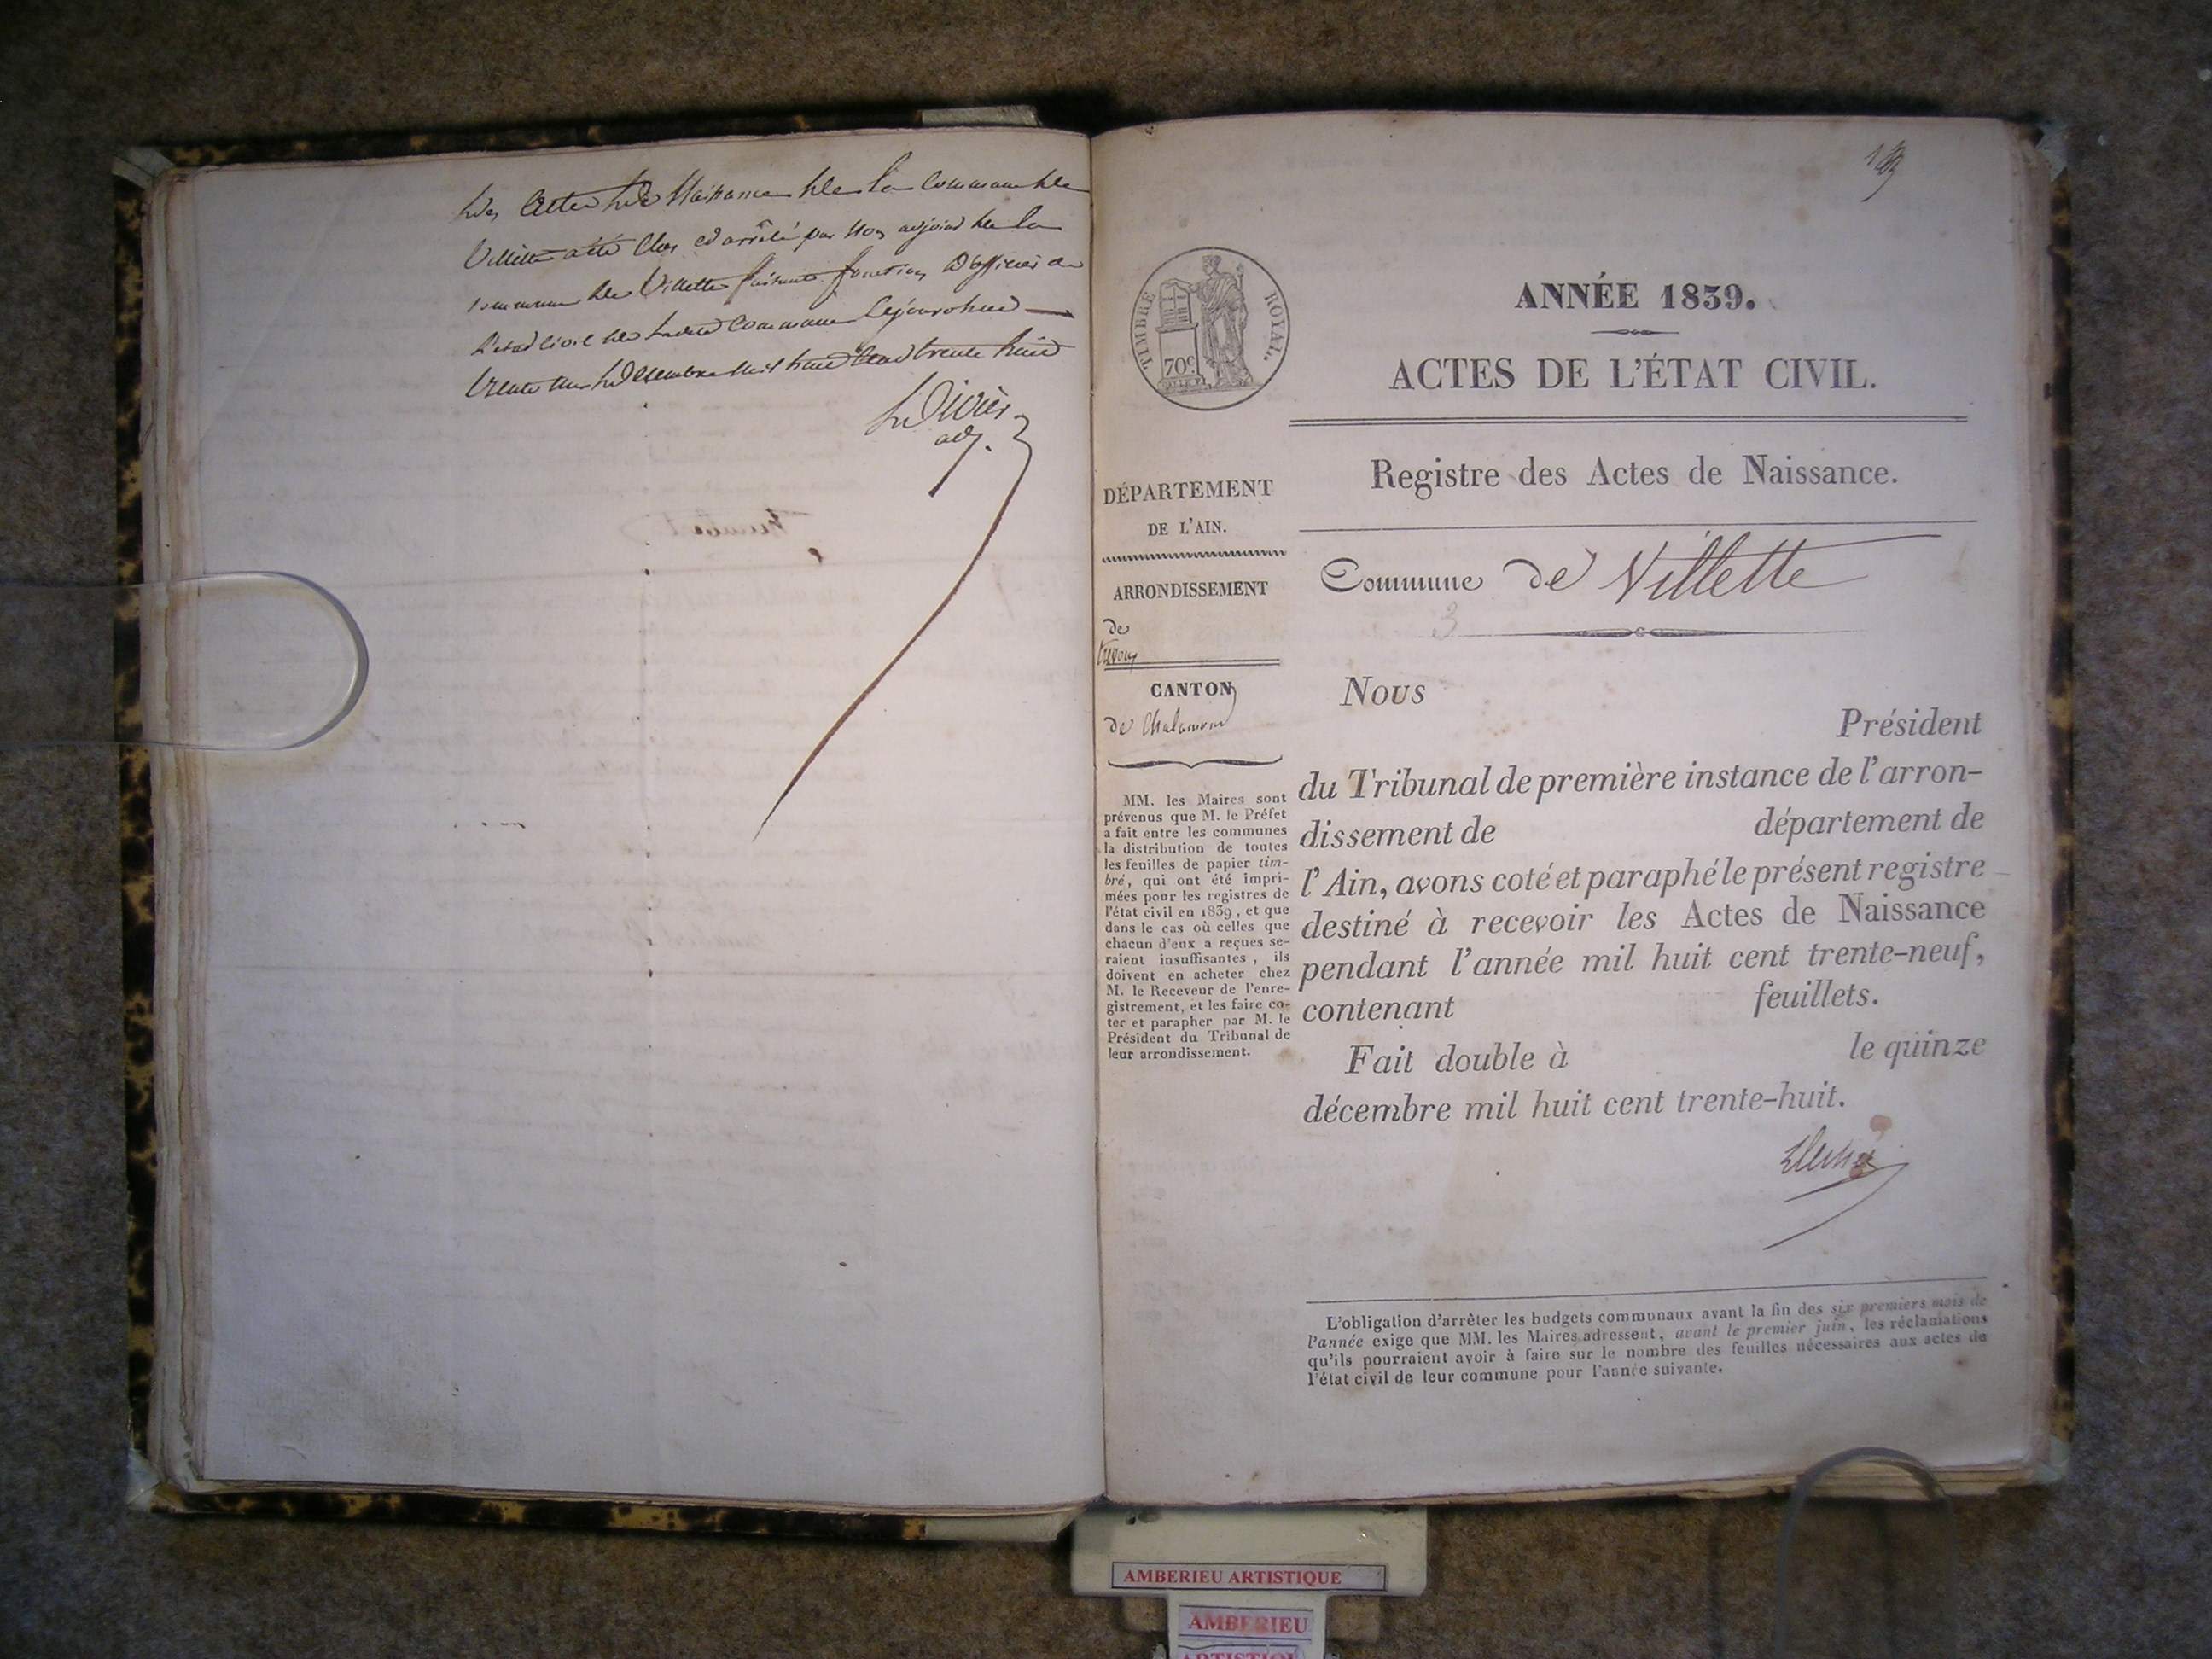 des Actes de Naissance de la Commune de
Villette a été Clos et arrêté par Nous adjoint de la
commune de Villette faisant fonctions d'officier de
l'état civil de ladite Commune Cejourdhui
trente un décembre mil huit cent trente huit
adj.
ANNÉE 1839.
ACTES DE L'ÉTAT CIVIL.
TIMBRE ROYAL.
70c
Registre des Actes de Naissance.
DÉPARTEMENT
DE L'AIN.
ARRONDISSEMENT
de
trevoux
CANTON
de Chalamont
MM. les Maires sont
prévenus que M. le Préfet
a fait entre les communes
la distribution de toutes
les feuilles de papier tim-
bré, qui ont été impri-
mées pour les registres de
l'état civil en 1839, et que
dans le cas où celles que
chacun d'eux a reçues se-
raient insuffisantes, ils
doivent en acheter chez
M. le Receveur de l'enre-
gistrement, et les faire co-
ter et parapher par M. le
Président du Tribunal de
leur arrondissement.
Commune de Villette
3
Nous
Président
du Tribunal de première instance de l'arron-
dissement de département de
l'Ain, avons coté et paraphé le présent registre
destiné à recevoir les Actes de Naissance
pendant l'année mil huit cent trente-neuf,
contenant feuillets.
Fait double à le quinze
décembre mil huit cent trente-huit.
L'obligation d'arrêter les budgets communaux avant la fin des six premiers mois de
l'année exige que MM. les Maires adressent, avant le premier juin, les réclamations
qu'ils pourraient avoir à faire sur le nombre des feuilles nécessaires aux actes de
l'état civil de leur commune pour l'année suivante.
AMBERIEU ARTISTIQUE
AMBERIEU
ARTISTIQUE